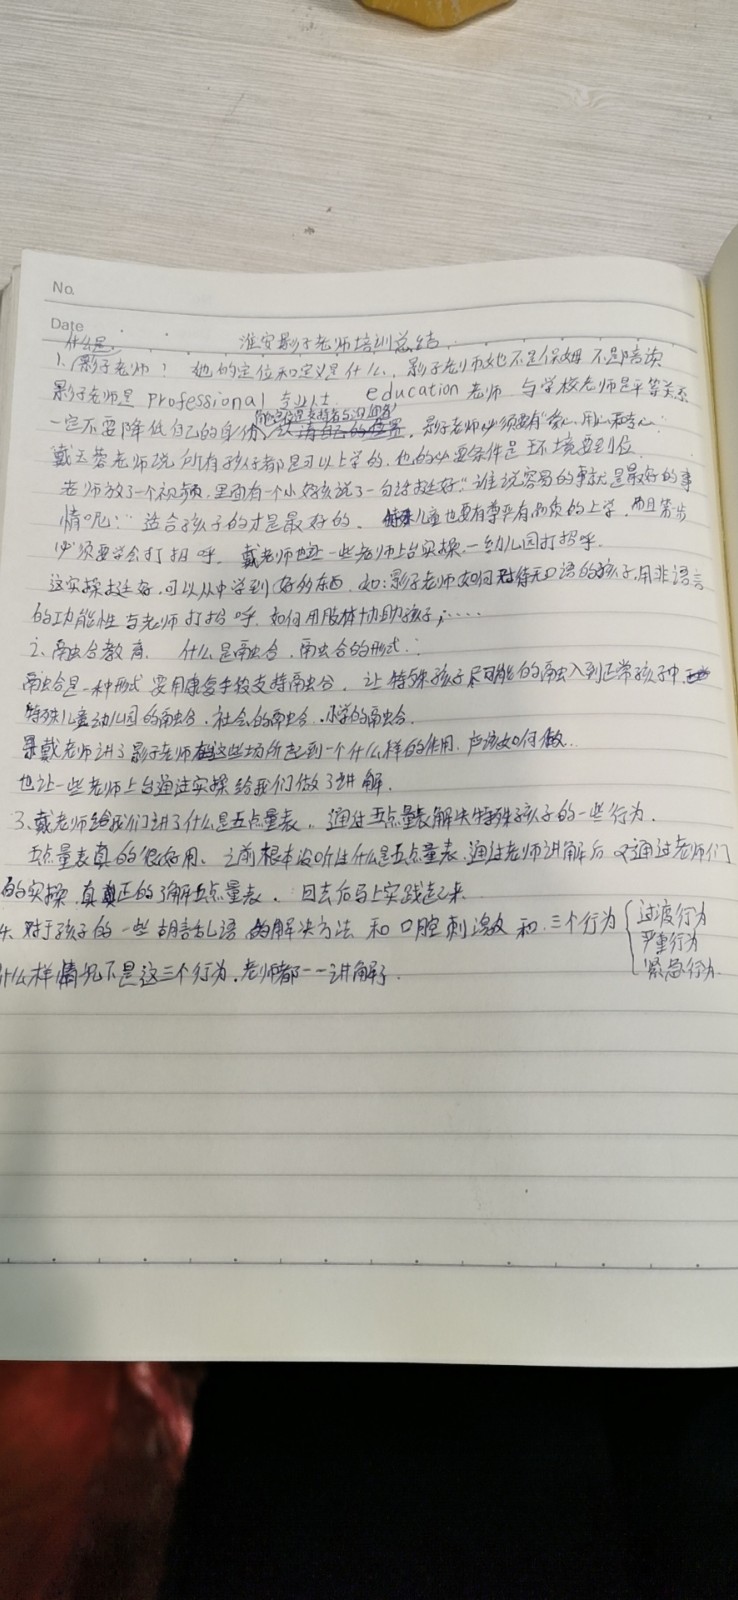 No.
Date
淮安影子老师培训总结
什么是
1.影子老师！ 她的定位和定义是什么，影子老师她不是保姆 不是陪读
影子老师是 professional 专业人士 education 老师 与学校老师是平等关系
一定不要降低自己的身份 影子老师必须要有"爱心、用心和专心"
戴玉蓉老师说 所有孩子都是可以上学的，他的必要条件是 环境要到位
老师放了一个视频，里面有一个小女孩说了一句话挺好"谁说容易的事就是最好的事
情呢！"适合孩子的才是最好的， 儿童也要有尊严有品质的上学，而且第一步
必须要学会打招呼， 戴老师也让一些老师上台实操，一幼儿园打招呼。
这实操挺好，可以从中学到好的东西，如：影子老师如何对待无口语的孩子，用非语言
的功能性与老师打招呼，如何用肢体协助孩子，……
2、融合教育 什么是融合，融合的形式：
融合是一种形式 要用康复手段支持融合，让特殊孩子尽可能的融入到正常孩子中，
特殊儿童幼儿园的融合，社会的融合，小学的融合。
戴老师讲了影子老师在这些场所起到一个什么样的作用，应该如何做…
也让一些老师上台通过实操给我们做了讲解，
3、戴老师给我们讲了什么是五点量表，通过五点量表解决特殊孩子的一些行为。
五点量表真的很好用、之前根本没听过什么是五点量表、通过老师讲解后 又通过老师们
的实操，真正的了解五点量表， 回去后马上实践起来。
4、对于孩子的一些胡言乱语的解决方法 和 口腔刺激 和 三个行为
过渡行为
严重行为
紧急行为
什么样情况下是这三个行为，老师都一一讲解了。